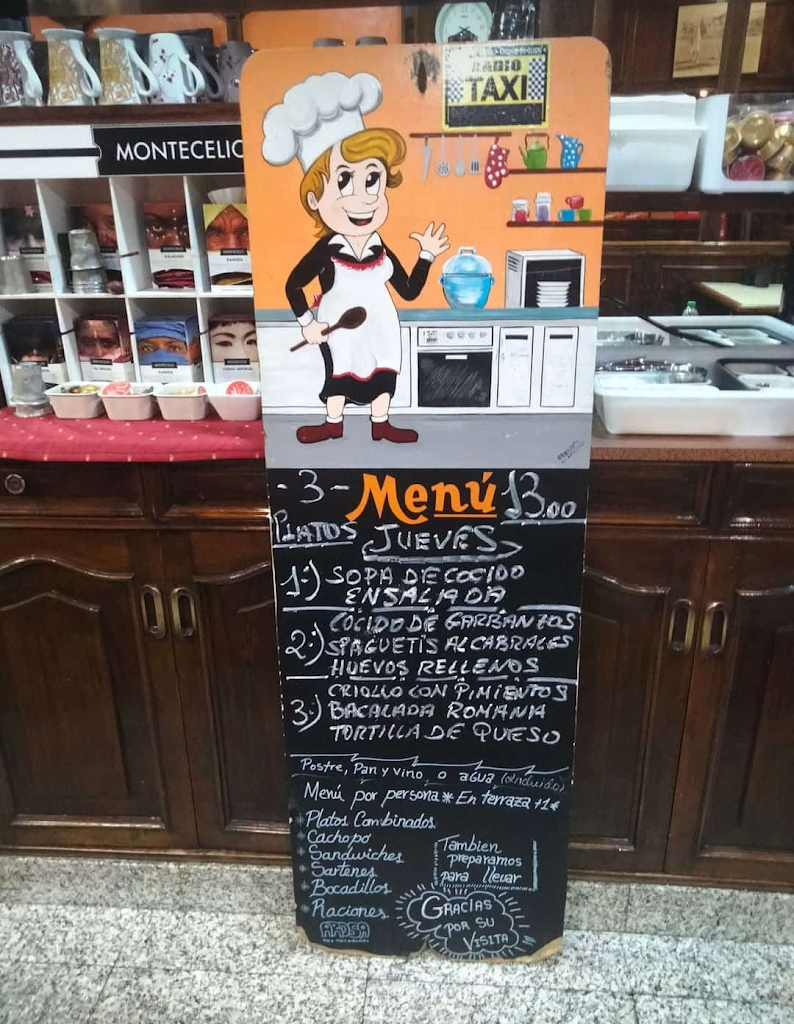 RADIO
TAXI
MONTECELIO
- 3 - Menú 13.00
PLATOS JUEVES
1:) SOPA DE COCIDO
ENSALADA
2:) COCIDO DE GARBANZOS
SPAGUETIS AL CABRALES
HUEVOS RELLENOS
3:) CRIOLLO CON PIMIENTOS
BACALADA ROMANA
TORTILLA DE QUESO
Postre, Pan y vino, o agua (incluido)
Menú por persona * En terraza +1€
* Platos Combinados
* Cachopo
* Sandwiches
* Sartenes
* Bocadillos
* Raciones
Tambien
preparamos
para llevar
GRACIAS
POR SU
VISITA